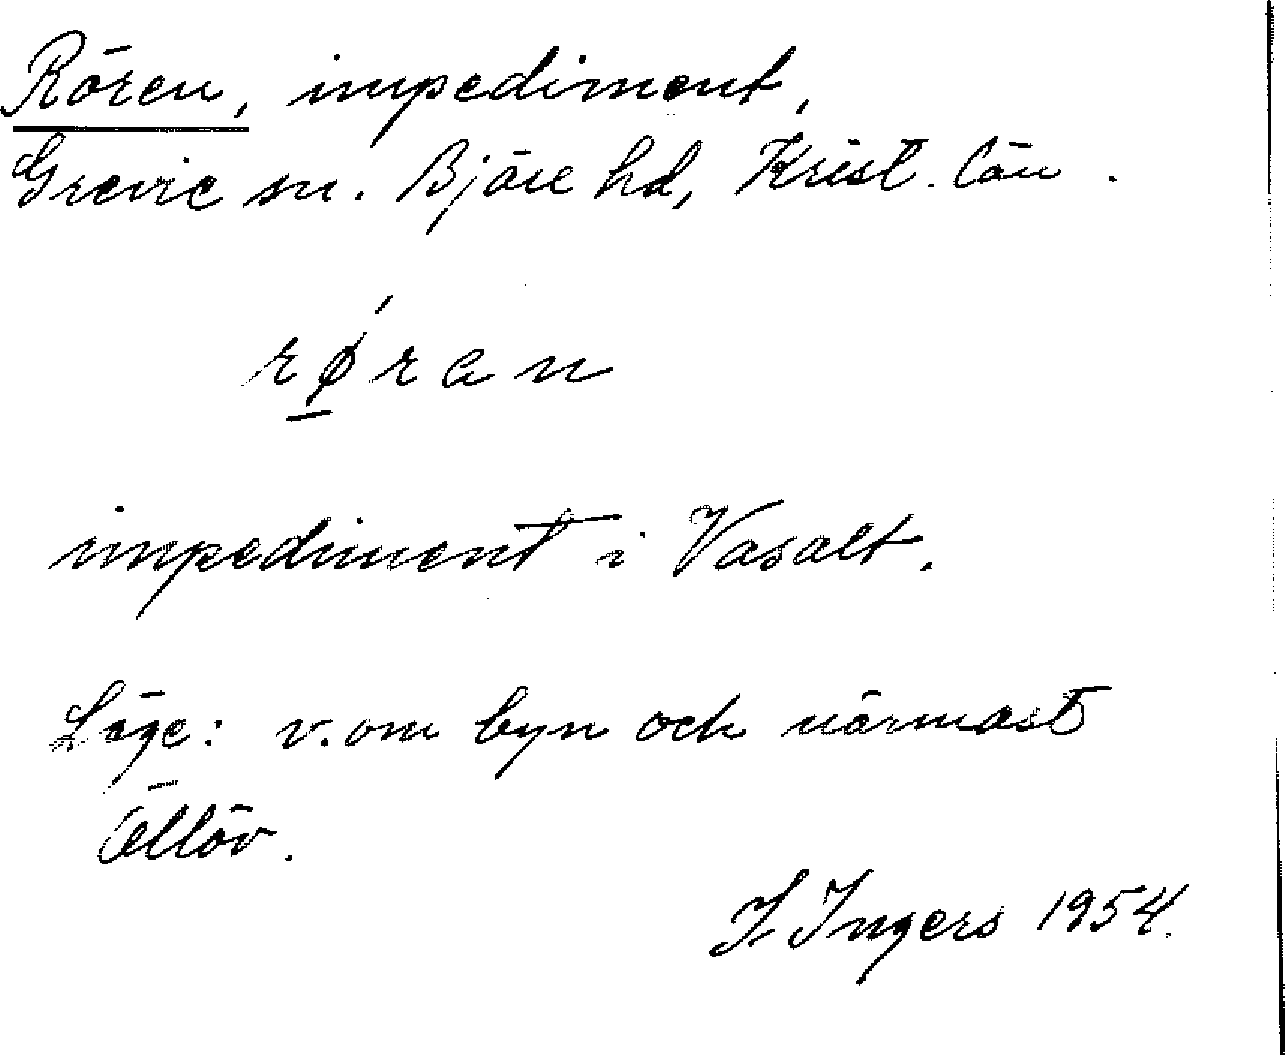 Rören, impediment,
Grevie sn. Bjäre hd, Krist. län.
rǿ̠ran
impediment i Vasalt.
Läge: v. om byn och närmast
Öllöv.
I Ingers 1954.